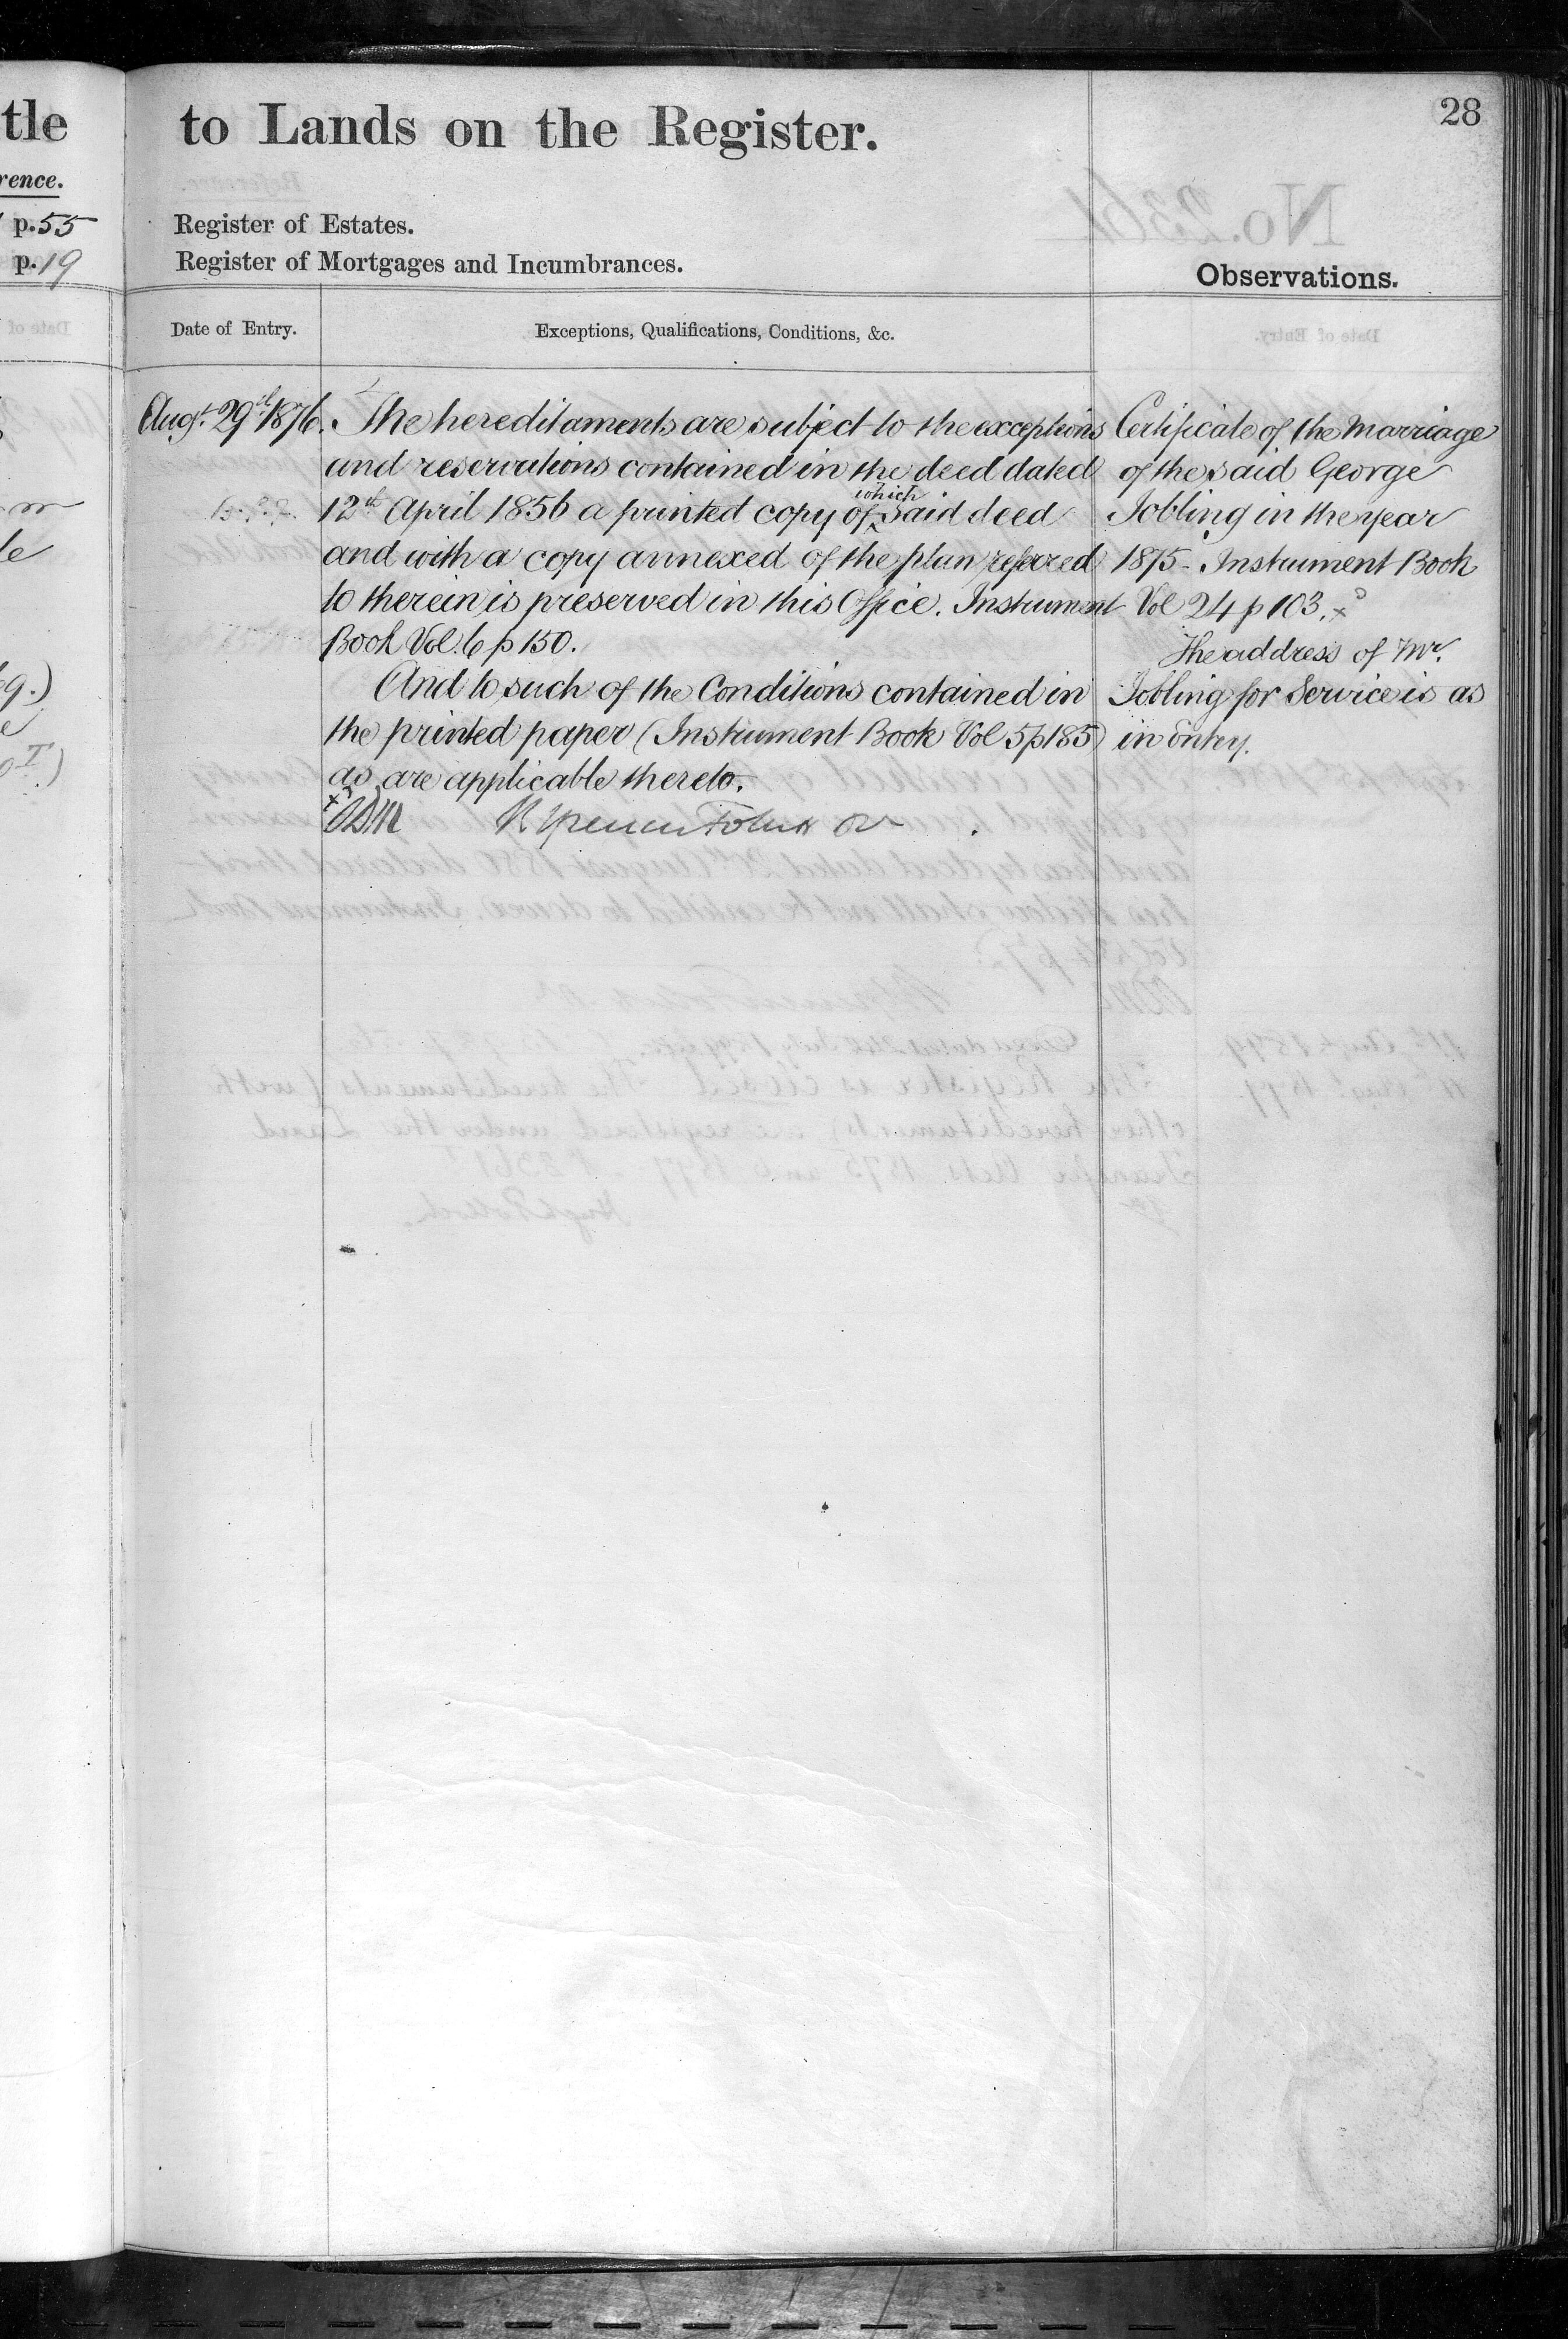 tle
rence.
p. 55
p. 19
to Lands on the Register.
28
Register of Estates.
Register of Mortgages and Incumbrances.
Observations.
Date of Entry.
Exceptions, Qualifications, Conditions, &c.
Augt. 29th 1876.
The hereditaments are subject to the exceptions
and reservations contained in the deed dated
12th April 1856 a printed copy of which said deed
and with a copy annexed of the plan referred
to therein is preserved in this Office. Instrument
Book Vol. 6 p 150.
And to such of the Conditions contained in
the printed paper (Instrument Book Vol 5 p 185)
as are applicable thereto.
Certificate of the Marriage
of the said George
Jobling in the year
1875 - Instrument Book
Vol 24 p 103.
The address of Mr.
Jobling for Service is as
in Entry.